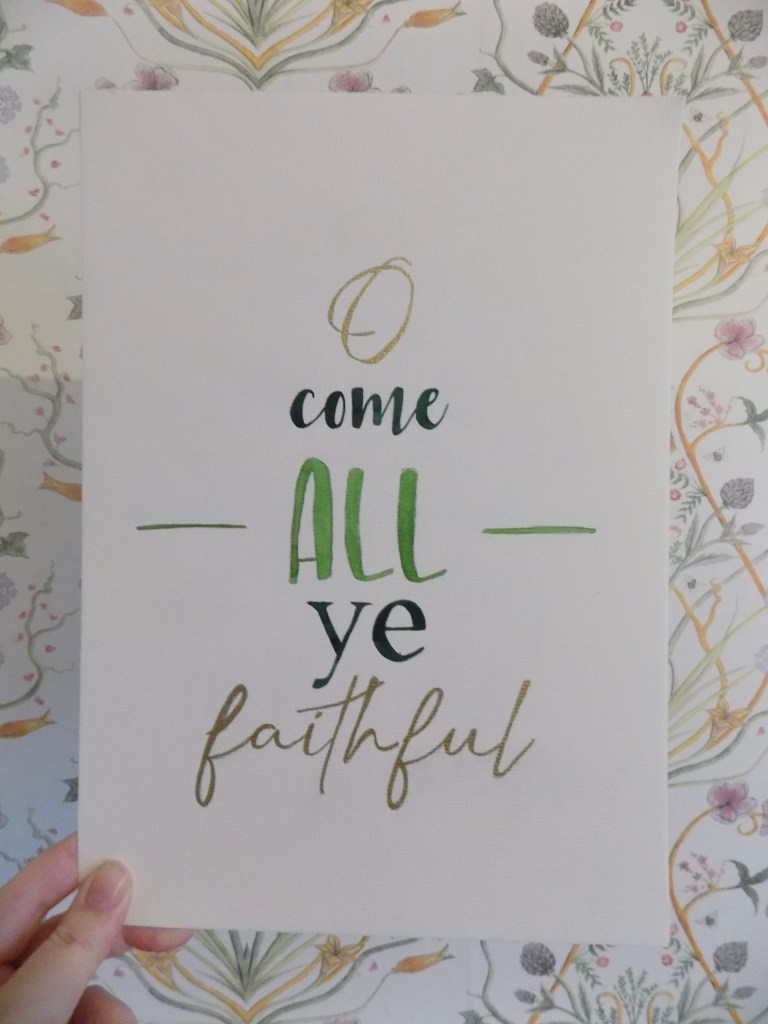 O
come
ALL
ye
faithful